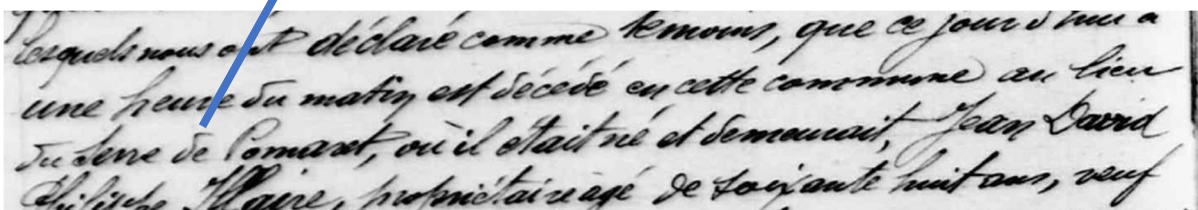 lesquels nous ont déclaré comme témoins, que ce jourd'hui a
une heure du matin est décédé en cette commune au lieu
du Serre de Pomaret, où il était né et demeurait, Jean David
Philippe Illaire, propriétaire agé de soixante huit ans, veuf